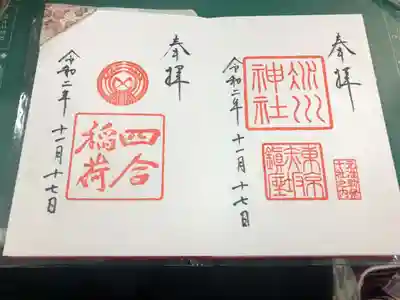 奉拝
氷川
神社
東京
赤坂
鎮座
令和二年 十一月 十七日
奉拝
四合
稲荷
令和二年 十一月 十七日